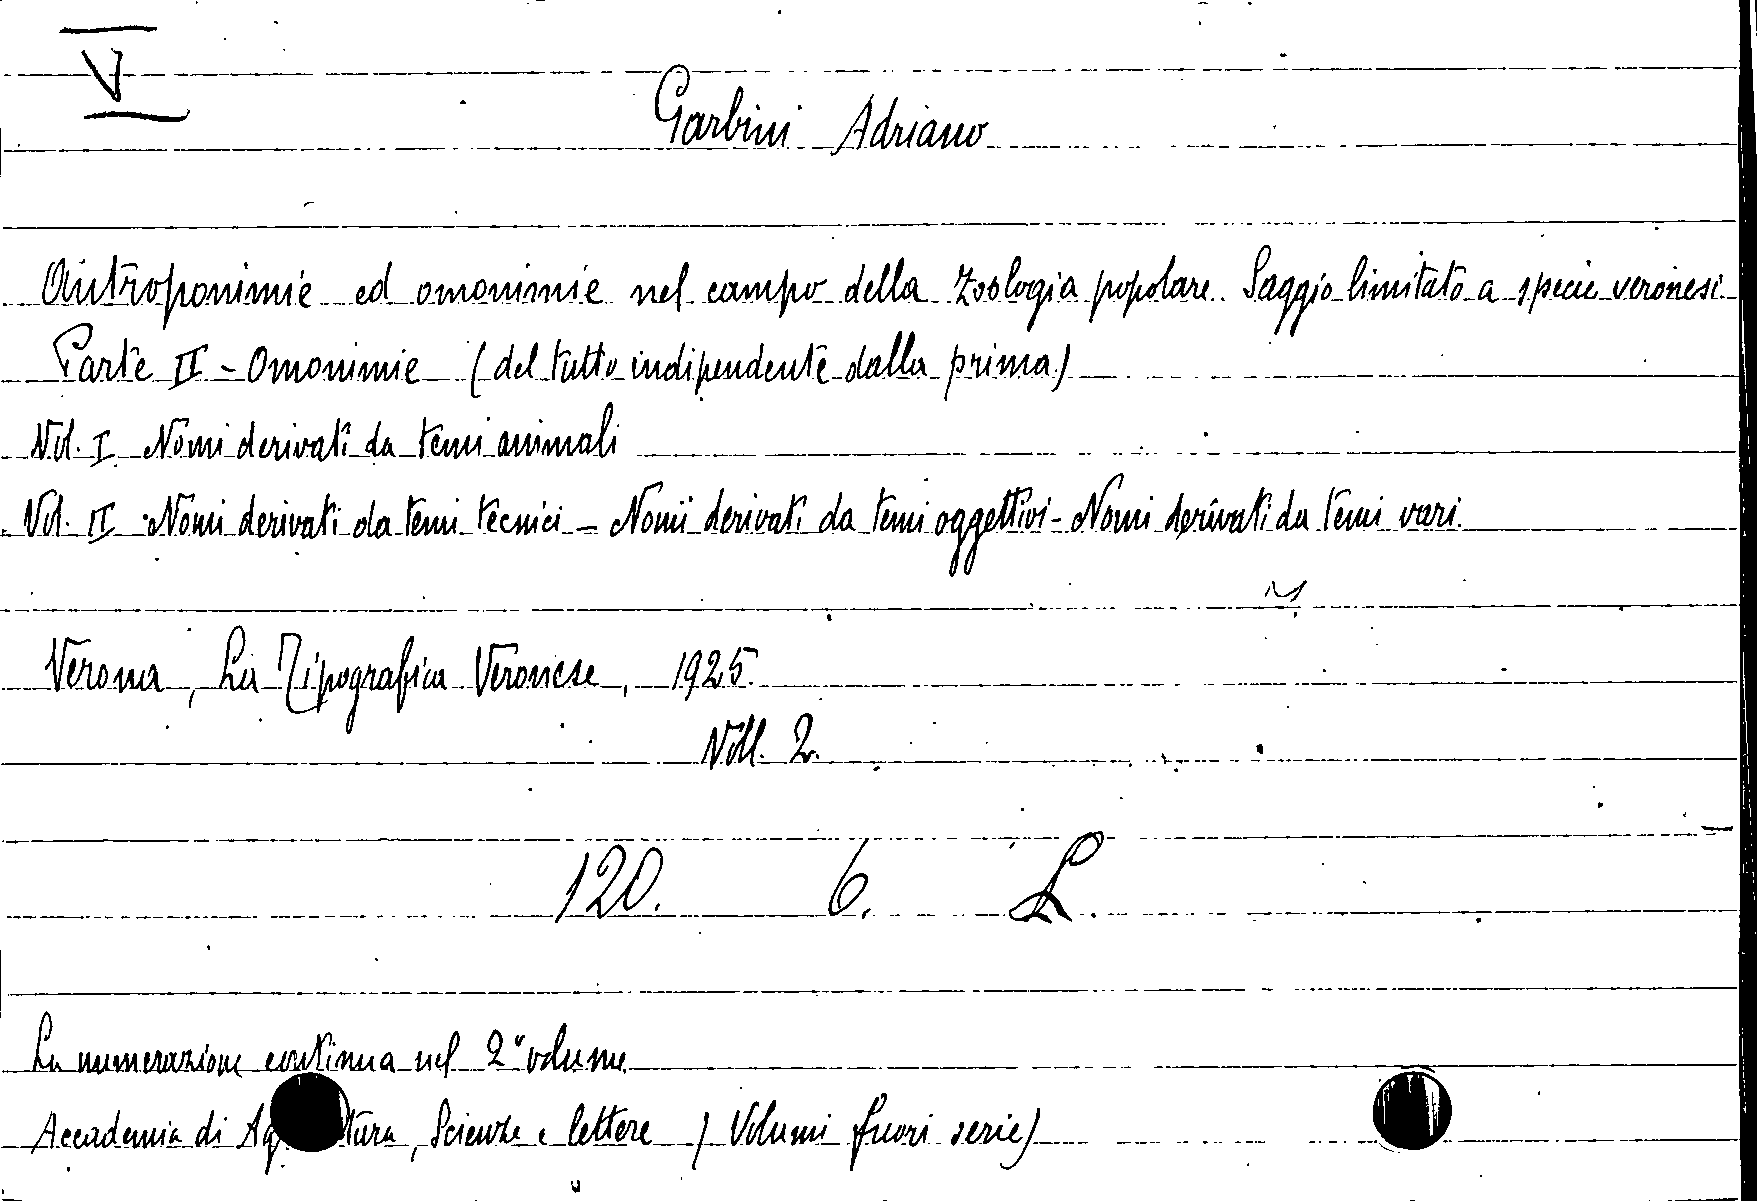 V
Garbini Adriano
Antroponimie ed omonimie nel campo della zoologia popolare. Saggio limitato a specie veronesi
Parte II - Omonimie (del tutto indipendente dalla prima)
Vol. I Nomi derivati da temi animali
Vol. II Nomi derivati da temi tecnici - Nomi derivati da temi oggettivi - Nomi derivati da temi vari.
Verona, La Tipografica Veronese, 1925.
Voll. 2.
120. 6. L.
La numerazione continua nel 2° volume
Accademia di Ag tura, Scienze e lettere (Volumi fuori serie)